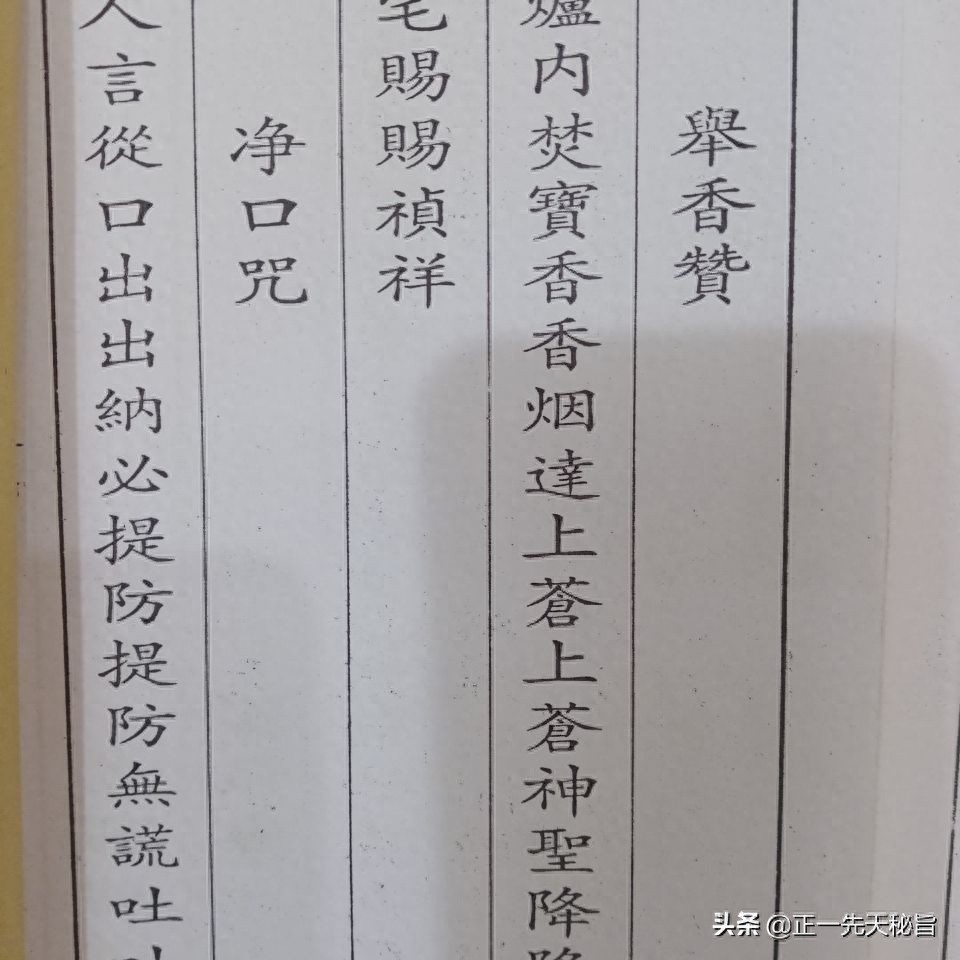 舉香贊
爐内焚寶香香烟達上蒼上蒼神聖降
宅賜賜禎祥
净口咒
人言從口出出納必提防提防無謊吐
头条 @正一先天秘旨